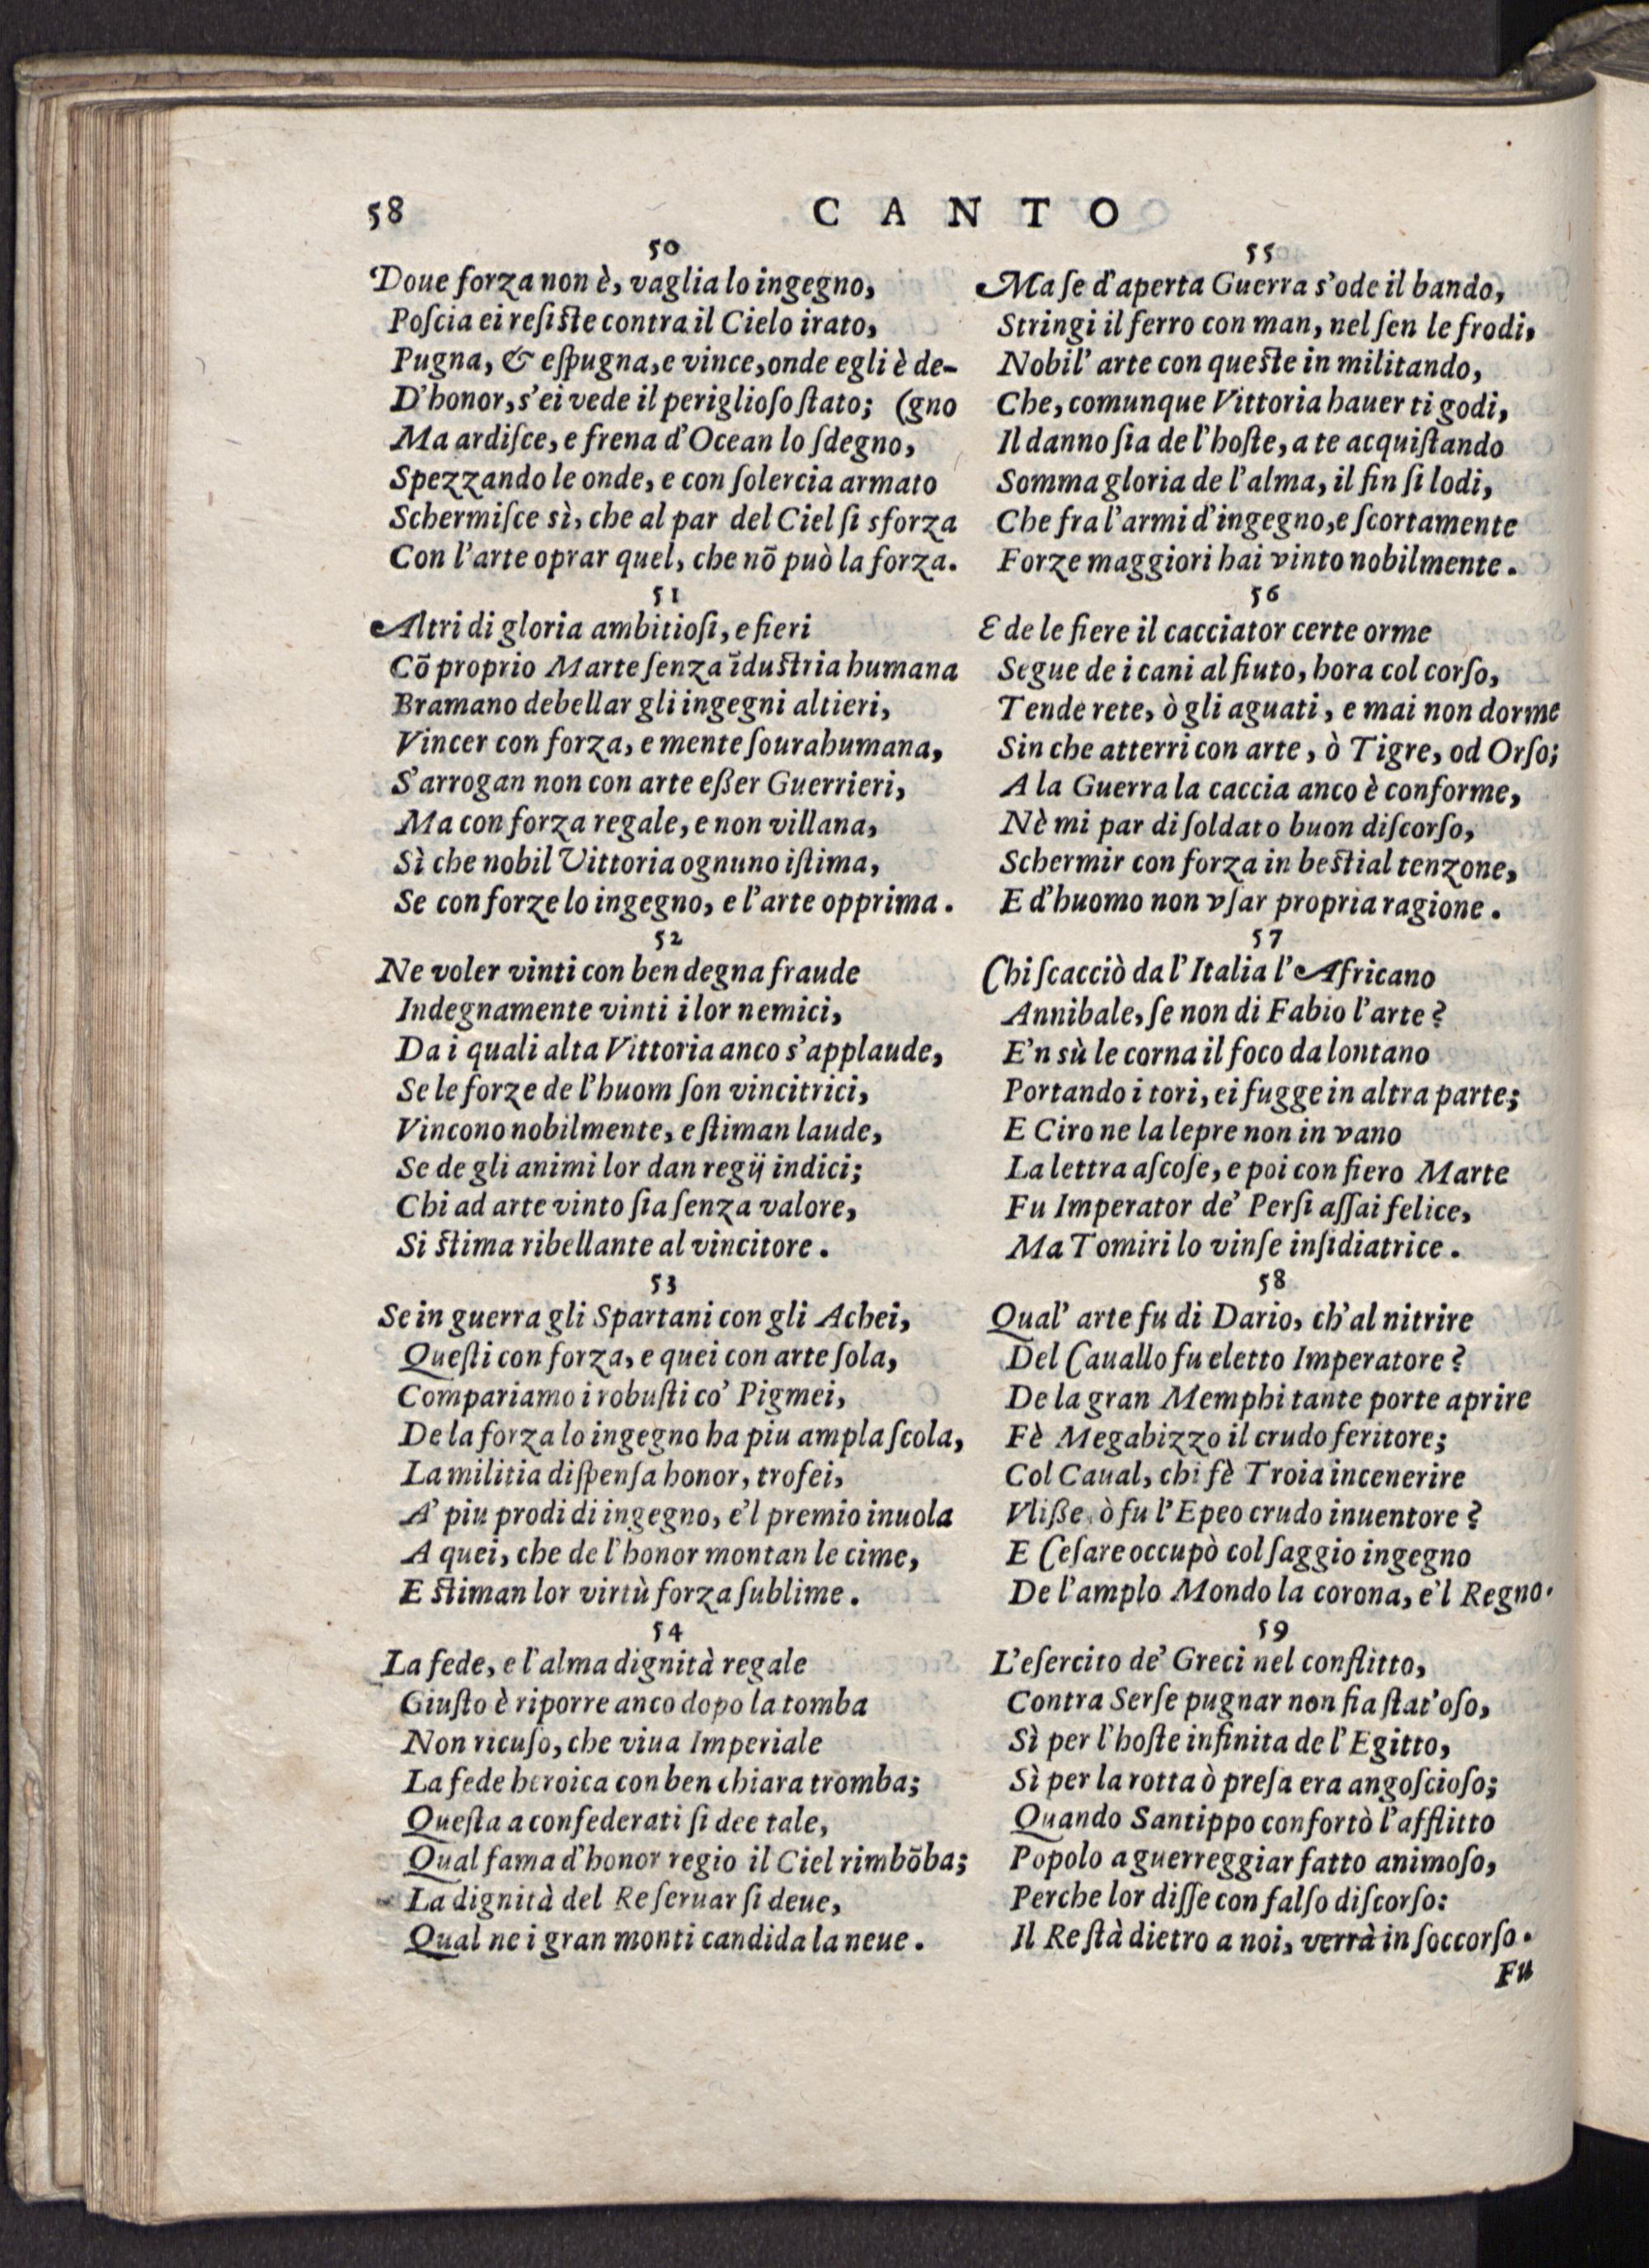 58
CANTO
50
Doue forza non è, vaglia lo ingegno,
Poſcia ei reſiſte contra il Cielo irato,
Pugna, & eſpugna, e vince, onde egli è de-
D'honor, s'ei vede il periglioſo ſtato; (gno
Ma ardiſce, e frena d'Ocean lo ſdegno,
Spezzando le onde, e con ſolercia armato
Schermiſce sì, che al par del Ciel ſi sforza
Con l'arte oprar quel, che nõ può la forza.
51
Altri di gloria ambitioſi, e fieri
Cõ proprio Marte ſenza ĩduſtria humana
Bramano debellar gli ingegni altieri,
Vincer con forza, e mente ſourahumana,
S'arrogan non con arte eßer Guerrieri,
Ma con forza regale, e non villana,
Sì che nobil Vittoria ognuno iſtima,
Se con forze lo ingegno, e l'arte opprima.
52
Ne voler vinti con ben degna fraude
Indegnamente vinti i lor nemici,
Da i quali alta Vittoria anco s'applaude,
Se le forze de l'huom ſon vincitrici,
Vincono nobilmente, e ſtiman laude,
Se de gli animi lor dan regij indici;
Chi ad arte vinto ſia ſenza valore,
Si ſtima ribellante al vincitore.
53
Se in guerra gli Spartani con gli Achei,
Queſti con forza, e quei con arte ſola,
Compariamo i robuſti co' Pigmei,
De la forza lo ingegno ha piu ampla ſcola,
La militia diſpenſa honor, trofei,
A' piu prodi di ingegno, e'l premio inuola
A quei, che de l'honor montan le cime,
E ſtiman lor virtù forza ſublime.
54
La fede, e l'alma dignità regale
Giuſto è riporre anco dopo la tomba
Non ricuſo, che viua Imperiale
La fede heroica con ben chiara tromba;
Queſta a confederati ſi dee tale,
Qual fama d'honor regio il Ciel rimbõba;
La dignità del Re ſeruar ſi deue,
Qual ne i gran monti candida la neue.
55
Ma ſe d'aperta Guerra s'ode il bando,
Stringi il ferro con man, nel ſen le frodi,
Nobil' arte con queſte in militando,
Che, comunque Vittoria hauer ti godi,
Il danno ſia de l'hoſte, a te acquiſtando
Somma gloria de l'alma, il fin ſi lodi,
Che fra l'armi d'ingegno, e ſcortamente
Forze maggiori hai vinto nobilmente.
56
E de le fiere il cacciator certe orme
Segue de i cani al fiuto, hora col corſo,
Tende rete, ò gli aguati, e mai non dorme
Sin che atterri con arte, ò Tigre, od Orſo;
A la Guerra la caccia anco è conforme,
Nè mi par di ſoldato buon diſcorſo,
Schermir con forza in beſtial tenzone,
E d'huomo non vſar propria ragione.
57
Chi ſcacciò da l'Italia l'Africano
Annibale, ſe non di Fabio l'arte?
E'n sù le corna il foco da lontano
Portando i tori, ei fugge in altra parte;
E Ciro ne la lepre non in vano
La lettra aſcoſe, e poi con fiero Marte
Fu Imperator de' Perſi aſſai felice,
Ma Tomiri lo vinſe inſidiatrice.
58
Qual' arte fu di Dario, ch'al nitrire
Del Cauallo fu eletto Imperatore?
De la gran Memphi tante porte aprire
Fè Megabizzo il crudo feritore;
Col Caual, chi fè Troia incenerire
Vliße, ò fu l'Epeo crudo inuentore?
E Ceſare occupò col ſaggio ingegno
De l'amplo Mondo la corona, e'l Regno.
59
L'eſercito de' Greci nel conflitto,
Contra Serſe pugnar non fia ſtat'oſo,
Sì per l'hoſte infinita de l'Egitto,
Sì per la rotta ò preſa era angoſcioſo;
Quando Santippo confortò l'afflitto
Popolo a guerreggiar fatto animoſo,
Perche lor diſſe con falſo diſcorſo:
Il Re ſtà dietro a noi, verrà in ſoccorſo.
Fu